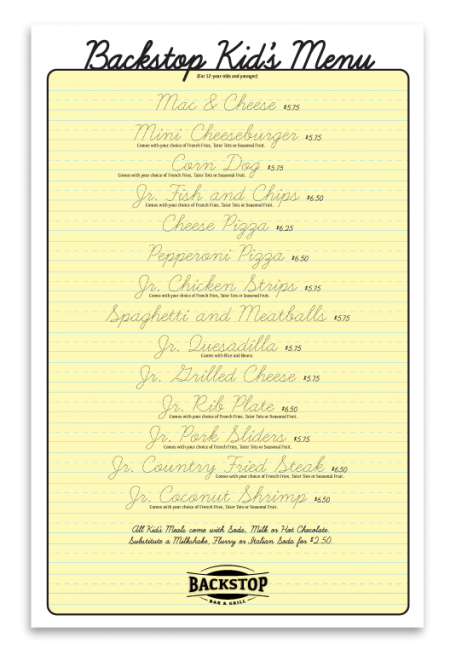 Backstop Kid's Menu
(For 12-year olds and younger)
Mac & Cheese $5.75
Mini Cheeseburger $5.75
Comes with your choice of French Fries, Tater Tots or Seasonal Fruit.
Corn Dog $5.75
Comes with your choice of French Fries, Tater Tots or Seasonal Fruit.
Jr. Fish and Chips $6.50
Comes with your choice of French Fries, Tater Tots or Seasonal Fruit.
Cheese Pizza $6.25
Pepperoni Pizza $6.50
Jr. Chicken Strips $5.75
Comes with your choice of French Fries, Tater Tots or Seasonal Fruit.
Spaghetti and Meatballs $5.75
Jr. Quesadilla $5.75
Comes with Rice and Beans.
Jr. Grilled Cheese $5.75
Jr. Rib Plate $6.50
Comes with your choice of French Fries, Tater Tots or Seasonal Fruit.
Jr. Pork Sliders $5.75
Comes with your choice of French Fries, Tater Tots or Seasonal Fruit.
Jr. Country Fried Steak $6.50
Comes with your choice of French Fries, Tater Tots or Seasonal Fruit.
Jr. Coconut Shrimp $6.50
Comes with your choice of French Fries, Tater Tots or Seasonal Fruit.
All Kid's Meals come with Soda, Milk or Hot Chocolate.
Substitute a Milkshake, Flurry or Italian Soda for $2.50.
BACKSTOP
BAR & GRILL